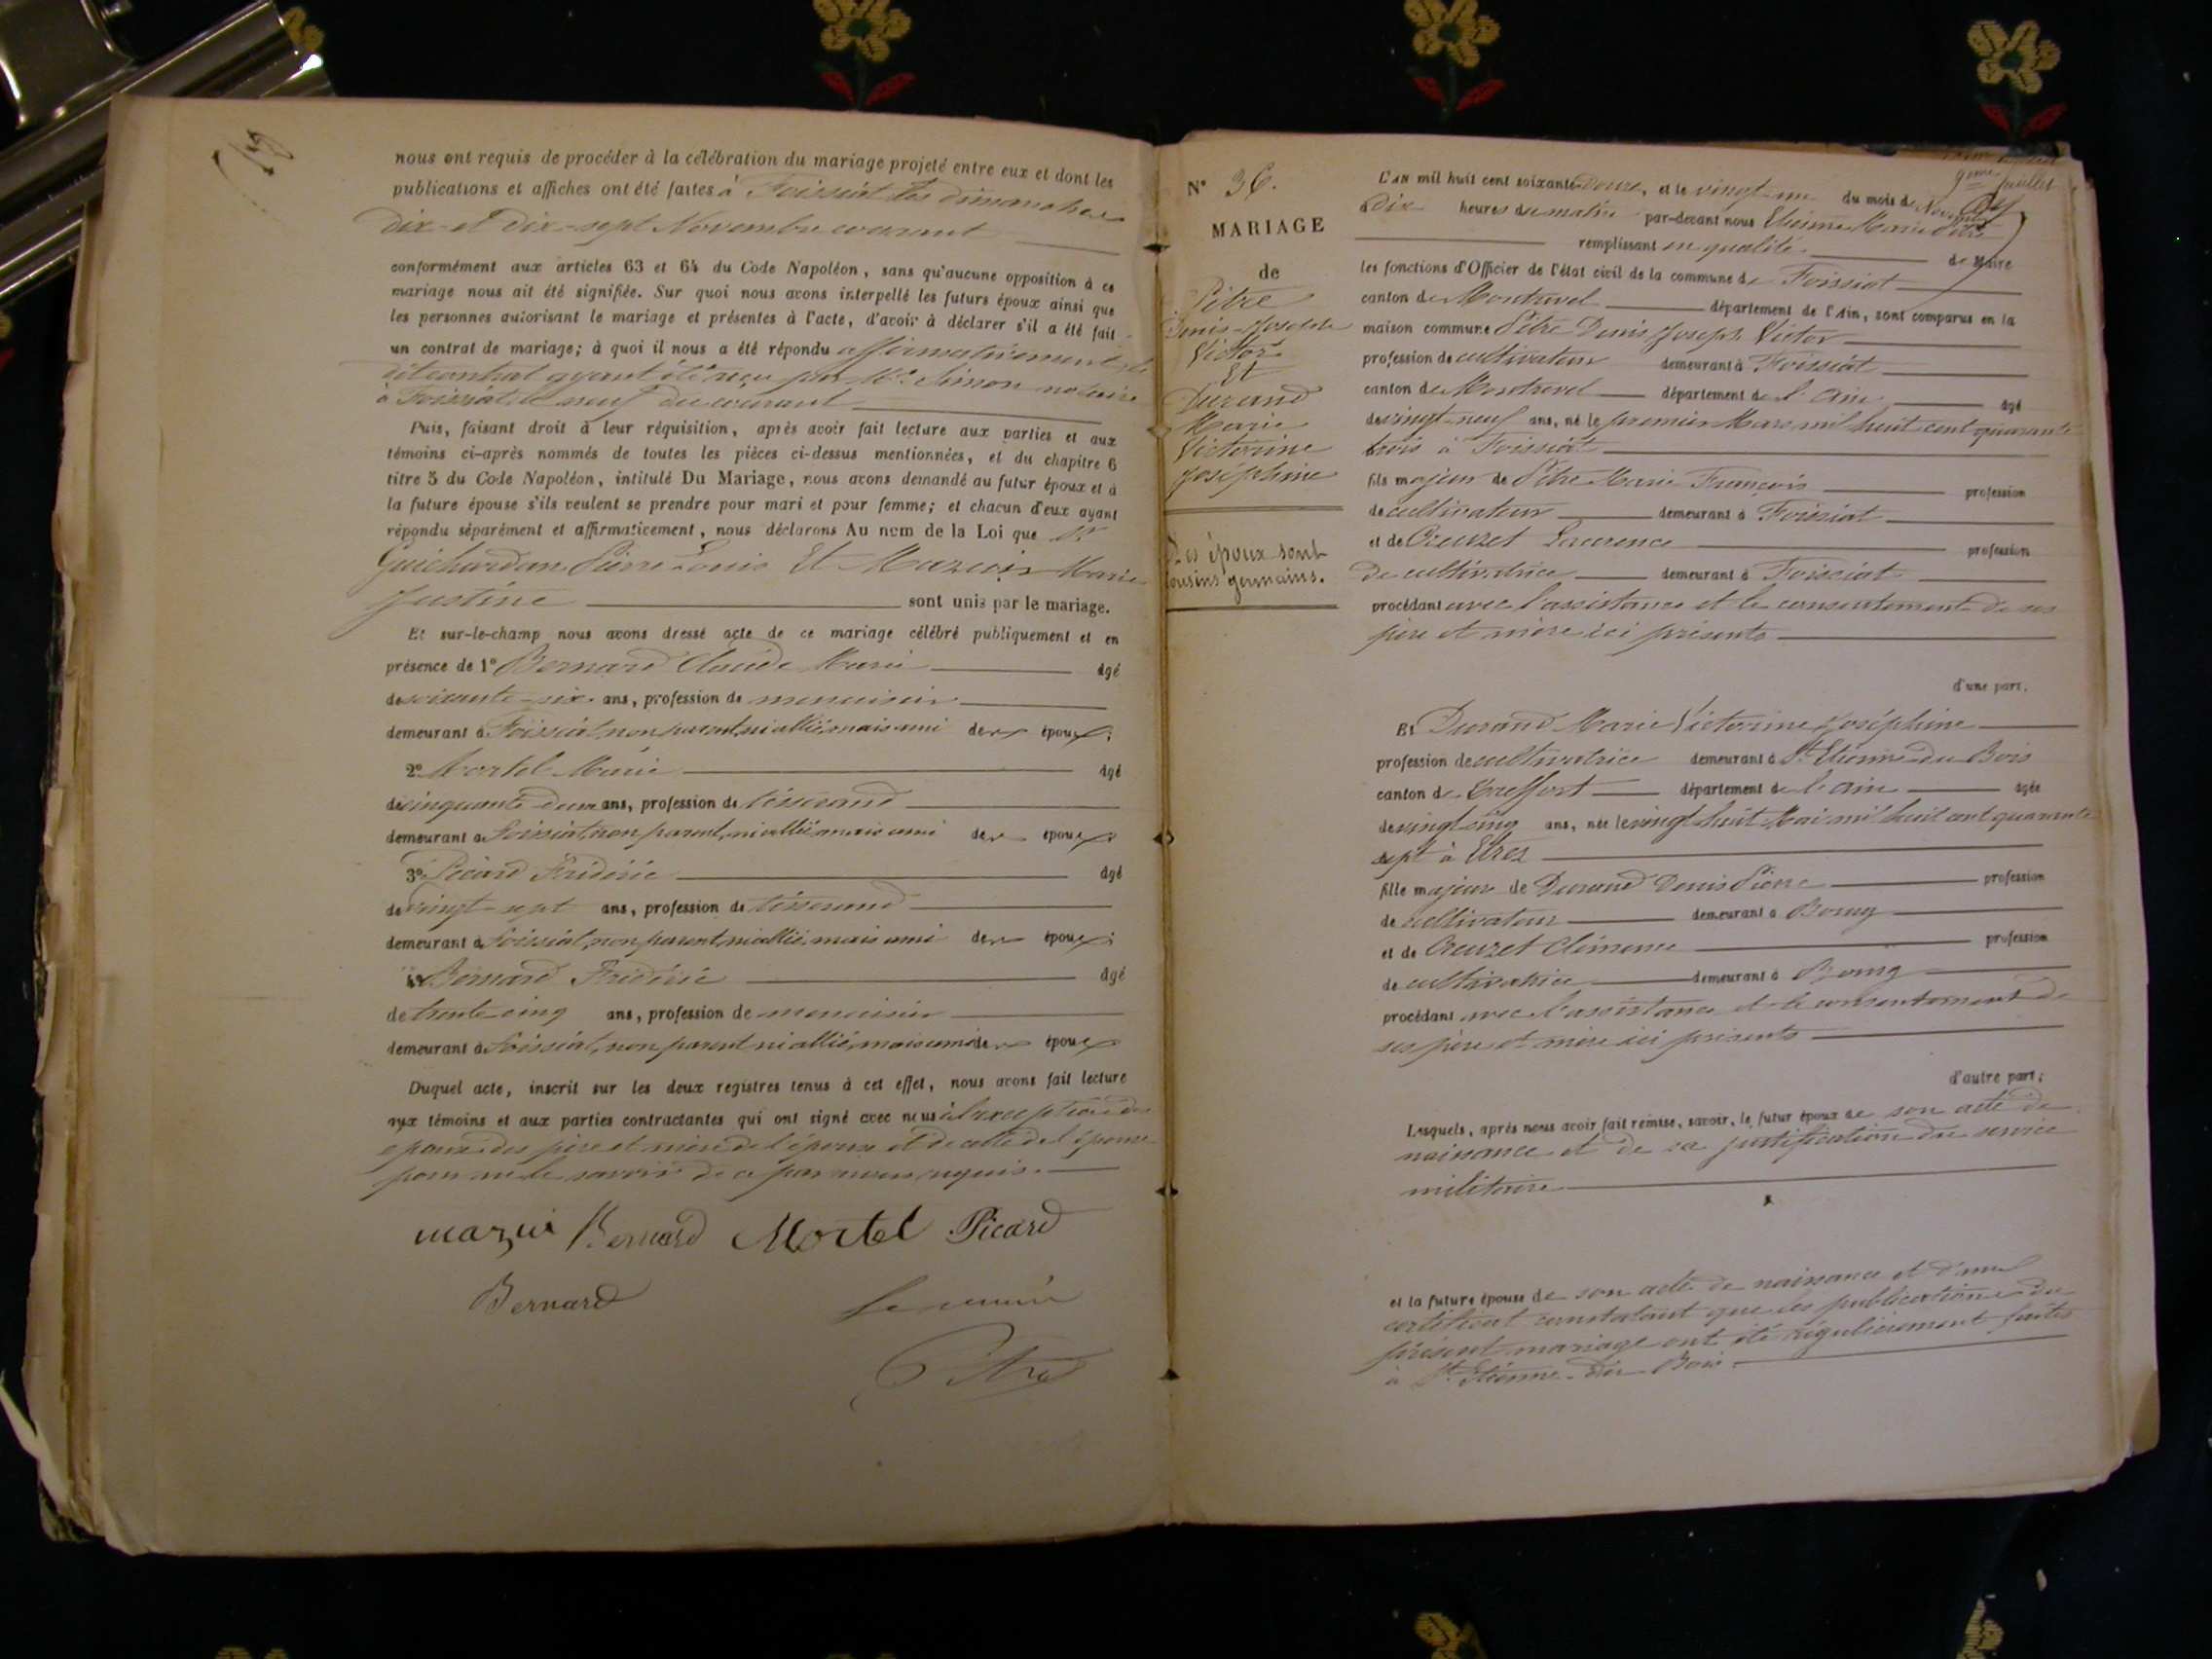 nous ont requis de procéder à la célébration du mariage projeté entre eux et dont les
publications et affiches ont été faites à Foissiat les dimanches
dix et dix-sept Novembre courant
conformément aux articles 63 et 64 du Code Napoléon, sans qu'aucune opposition à ce
mariage nous ait été signifiée. Sur quoi nous avons interpellé les futurs époux ainsi que
les personnes autorisant le mariage et présentes à l'acte, d'avoir à déclarer s'il a été fait
un contrat de mariage; à quoi il nous a été répondu affirmativement le
dit contrat ayant été reçu par Me Simon notaire
à Foissiat le neuf du courant
Puis, faisant droit à leur réquisition, après avoir fait lecture aux parties et aux
témoins ci-après nommés de toutes les pièces ci-dessus mentionnées, et du chapitre 6
titre 5 du Code Napoléon, intitulé Du Mariage, nous avons demandé au futur époux et à
la future épouse s'ils veulent se prendre pour mari et pour femme; et chacun d'eux ayant
répondu séparément et affirmativement, nous déclarons Au nom de la Loi que
Guichardan Pierre Louis Et Mazuir Marie
Justine sont unis par le mariage.
Et sur-le-champ nous avons dressé acte de ce mariage célébré publiquement et en
présence de 1° Bernard Claude Marie âgé
de soixante-six ans, profession de menuisier
demeurant à Foissiat, non parent, ni allié, mais ami des époux;
2° Mortel Marie âgé
de cinquante deux ans, profession de tisserand
demeurant à Foissiat, non parent, ni allié mais ami des époux
3° Picard Frédéric âgé
de vingt-sept ans, profession de tisserand
demeurant à Foissiat, non parent, ni allié, mais ami des époux;
4° Bernard Frédéric âgé
de trente cinq ans, profession de menuisier
demeurant à Foissiat, non parent ni allié, mais ami des époux
Duquel acte, inscrit sur les deux registres tenus à cet effet, nous avons fait lecture
aux témoins et aux parties contractantes qui ont signé avec nous à l'exception des
époux des père et mère de l'époux et de celle de l'épouse
pour ne le savoir de ce par nous requis.
mazuir Bernard Mortel Picard
Bernard Le maire
Pitre
N° 36.
MARIAGE
de
Pitre
Denis-Joseph
Victor
Et
Durand
Marie
Victorine
Joséphine
Les époux sont
cousins germains.
L'AN mil huit cent soixante-douze, et le vingt-un du mois de Novembre
à Dix heures du matin par-devant nous Etienne Marie Pitre
remplissant en qualité de Maire
les fonctions d'Officier de l'état civil de la commune de Foissiat
canton de Montrevel département de l'Ain, sont comparus en la
maison commune Pitre Denis Joseph Victor
profession de cultivateur demeurant à Foissiat
canton de Montrevel département de l'Ain âgé
de vingt-neuf ans, né le premier Mars mil huit cent quarante
trois à Foissiat
fils majeur de Pitre Marie François profession
de cultivateur demeurant à Foissiat
et de Creuzet Laurence profession
de cultivatrice demeurant à Foissiat
procédant avec l'assistance et le consentement de ses
père et mère ici présents
d'une part.
Et Durand Marie Victorine Joséphine
profession de cultivatrice demeurant à St Etienne du Bois
canton de Treffort département de l'ain âgée
de vingt cinq ans, née le vingt huit Mai mil huit cent quarante
sept à Etrez
fille majeure de Durand Denis Pierre profession
de cultivateur demeurant à Bourg
et de Creuzet Clémence profession
de cultivatrice demeurant à Bourg
procédant avec l'assistance et le consentement de
ses père et mère ici présents
d'autre part;
Lesquels, après nous avoir fait remise, savoir, le futur époux de son acte de
naissance et de sa justification du service
militaire
et la future épouse de son acte de naissance et d'un
certificat constatant que les publications du
présent mariage ont été régulièrement faites
à St Etienne-du-Bois